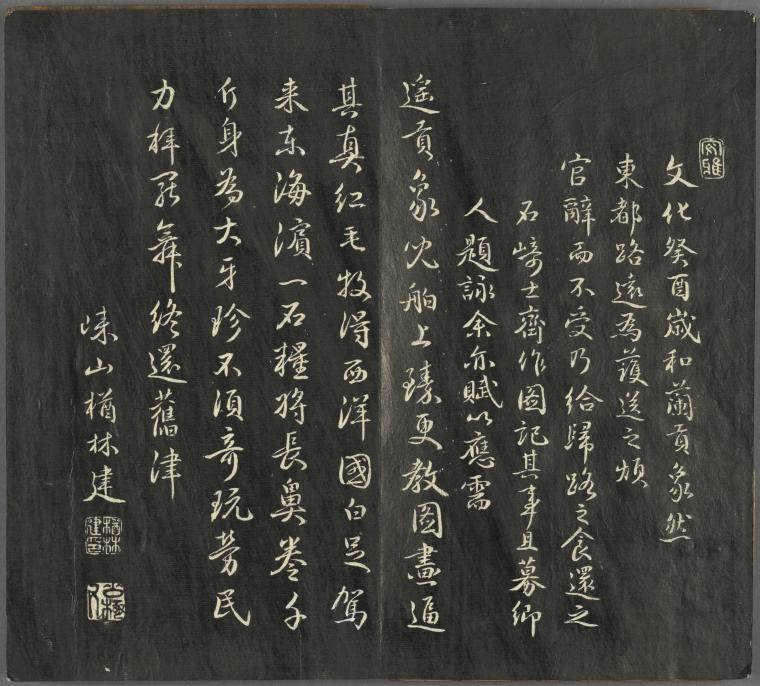 文雅
文化癸酉歳和蘭貢象然
東都路遠為護送之煩
官辭而不受乃給歸路之食還之
石崎士齊作圖記其事且募郷
人題詠余亦賦以應需
遥貢象兒舶上臻更教圖畫逼
其真紅毛牧得西洋國白足駕
来東海濱一石糧将長鼻巻千
斤身為大牙珍不須奇玩勞民
力拝罷舞終還舊津
山楢林建
楢林建印